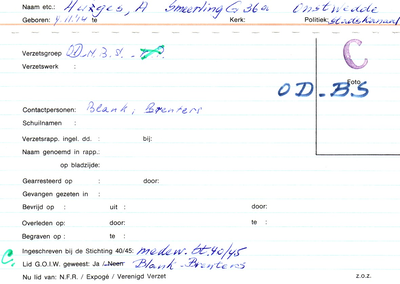 Naam etc.: Hazges, A Smeerling G 36a Onstwedde
Geboren: 4.11.14 te Kerk: Politiek: stadskanaal
Verzetsgroep : OD. N.B.S. -
C
Verzetswerk :
Foto
OD-BS
Contactpersonen: Blank, Brenters
Schuilnaam :
Verzetsrapp. ingel. dd. : bij:
Naam genoemd in rapp.:
op bladzijde:
Gearresteerd op : door:
Gevangen gezeten in :
Bevrijd op : uit : door:
Overleden op: door: te :
Begraven op : te :
Ingeschreven bij de Stichting 40/45: medew. St. 40/45
C. Lid G.O.I.W. geweest: Ja /Neen Blank Brenters
Nu lid van: N.F.R. / Expogé / Verenigd Verzet z.o.z.